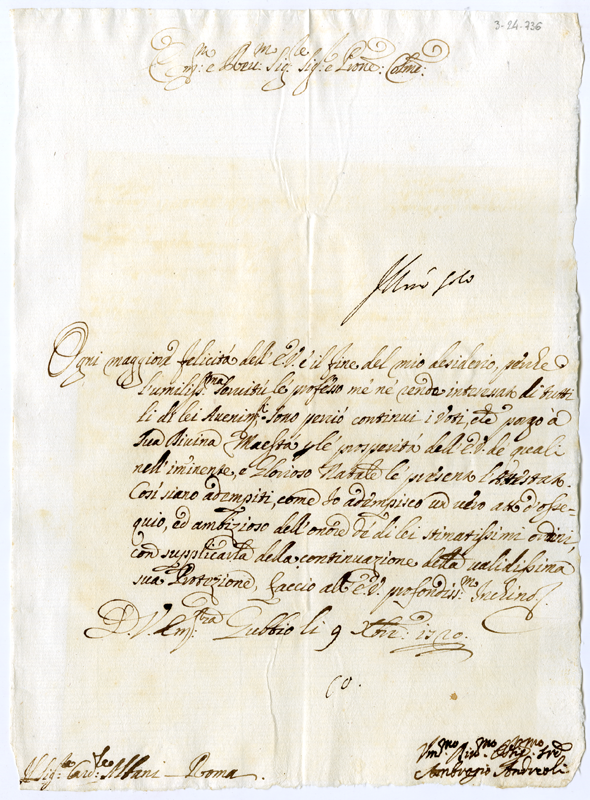 3-24-736
Em:mo e Reu:mo Sig:re Sig:re e Prone: Colmo:
Ogni maggiore felicità dell' E.V. è il fine del mio desiderio, perche
l'umiliss:ma Servitù le professo mé né rende interessar di tutti
li di lei Avenim:ti Sono perciò continui i Voti, che porgo à
Sua Divina Maestà p le prosperità dell' E.V. de quali
nell' iminente, e Glorioso Natale le presenta l'Attestar
Cosi siano adempiti, come Io adempisco un vero atto d'osse-
quio, ed ambizioso dell' onore de di lei stimatissimi
con supplicarla della continuazione della validissima
sua Protezione, faccio all' E.V. profondiss:mo Inchino
D. V. Em:  Gubbio li 9 Xbre: 1720.
Sig:re Card:le Albani - Roma.
Um:mo Serre
Ambrogio Andreoli